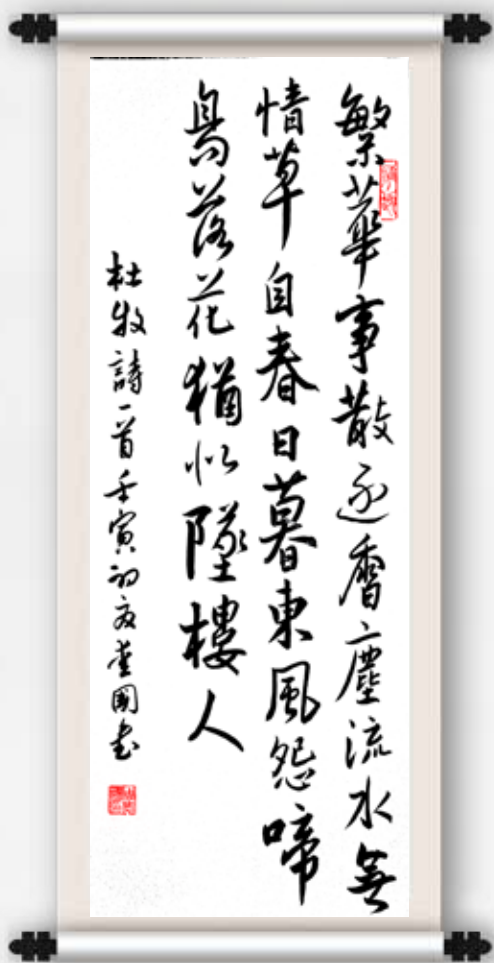 繁華事散逐香塵流水無
情草自春日暮東風怨啼
鳥落花猶似墜樓人
杜牧詩一首壬寅初夏董國书